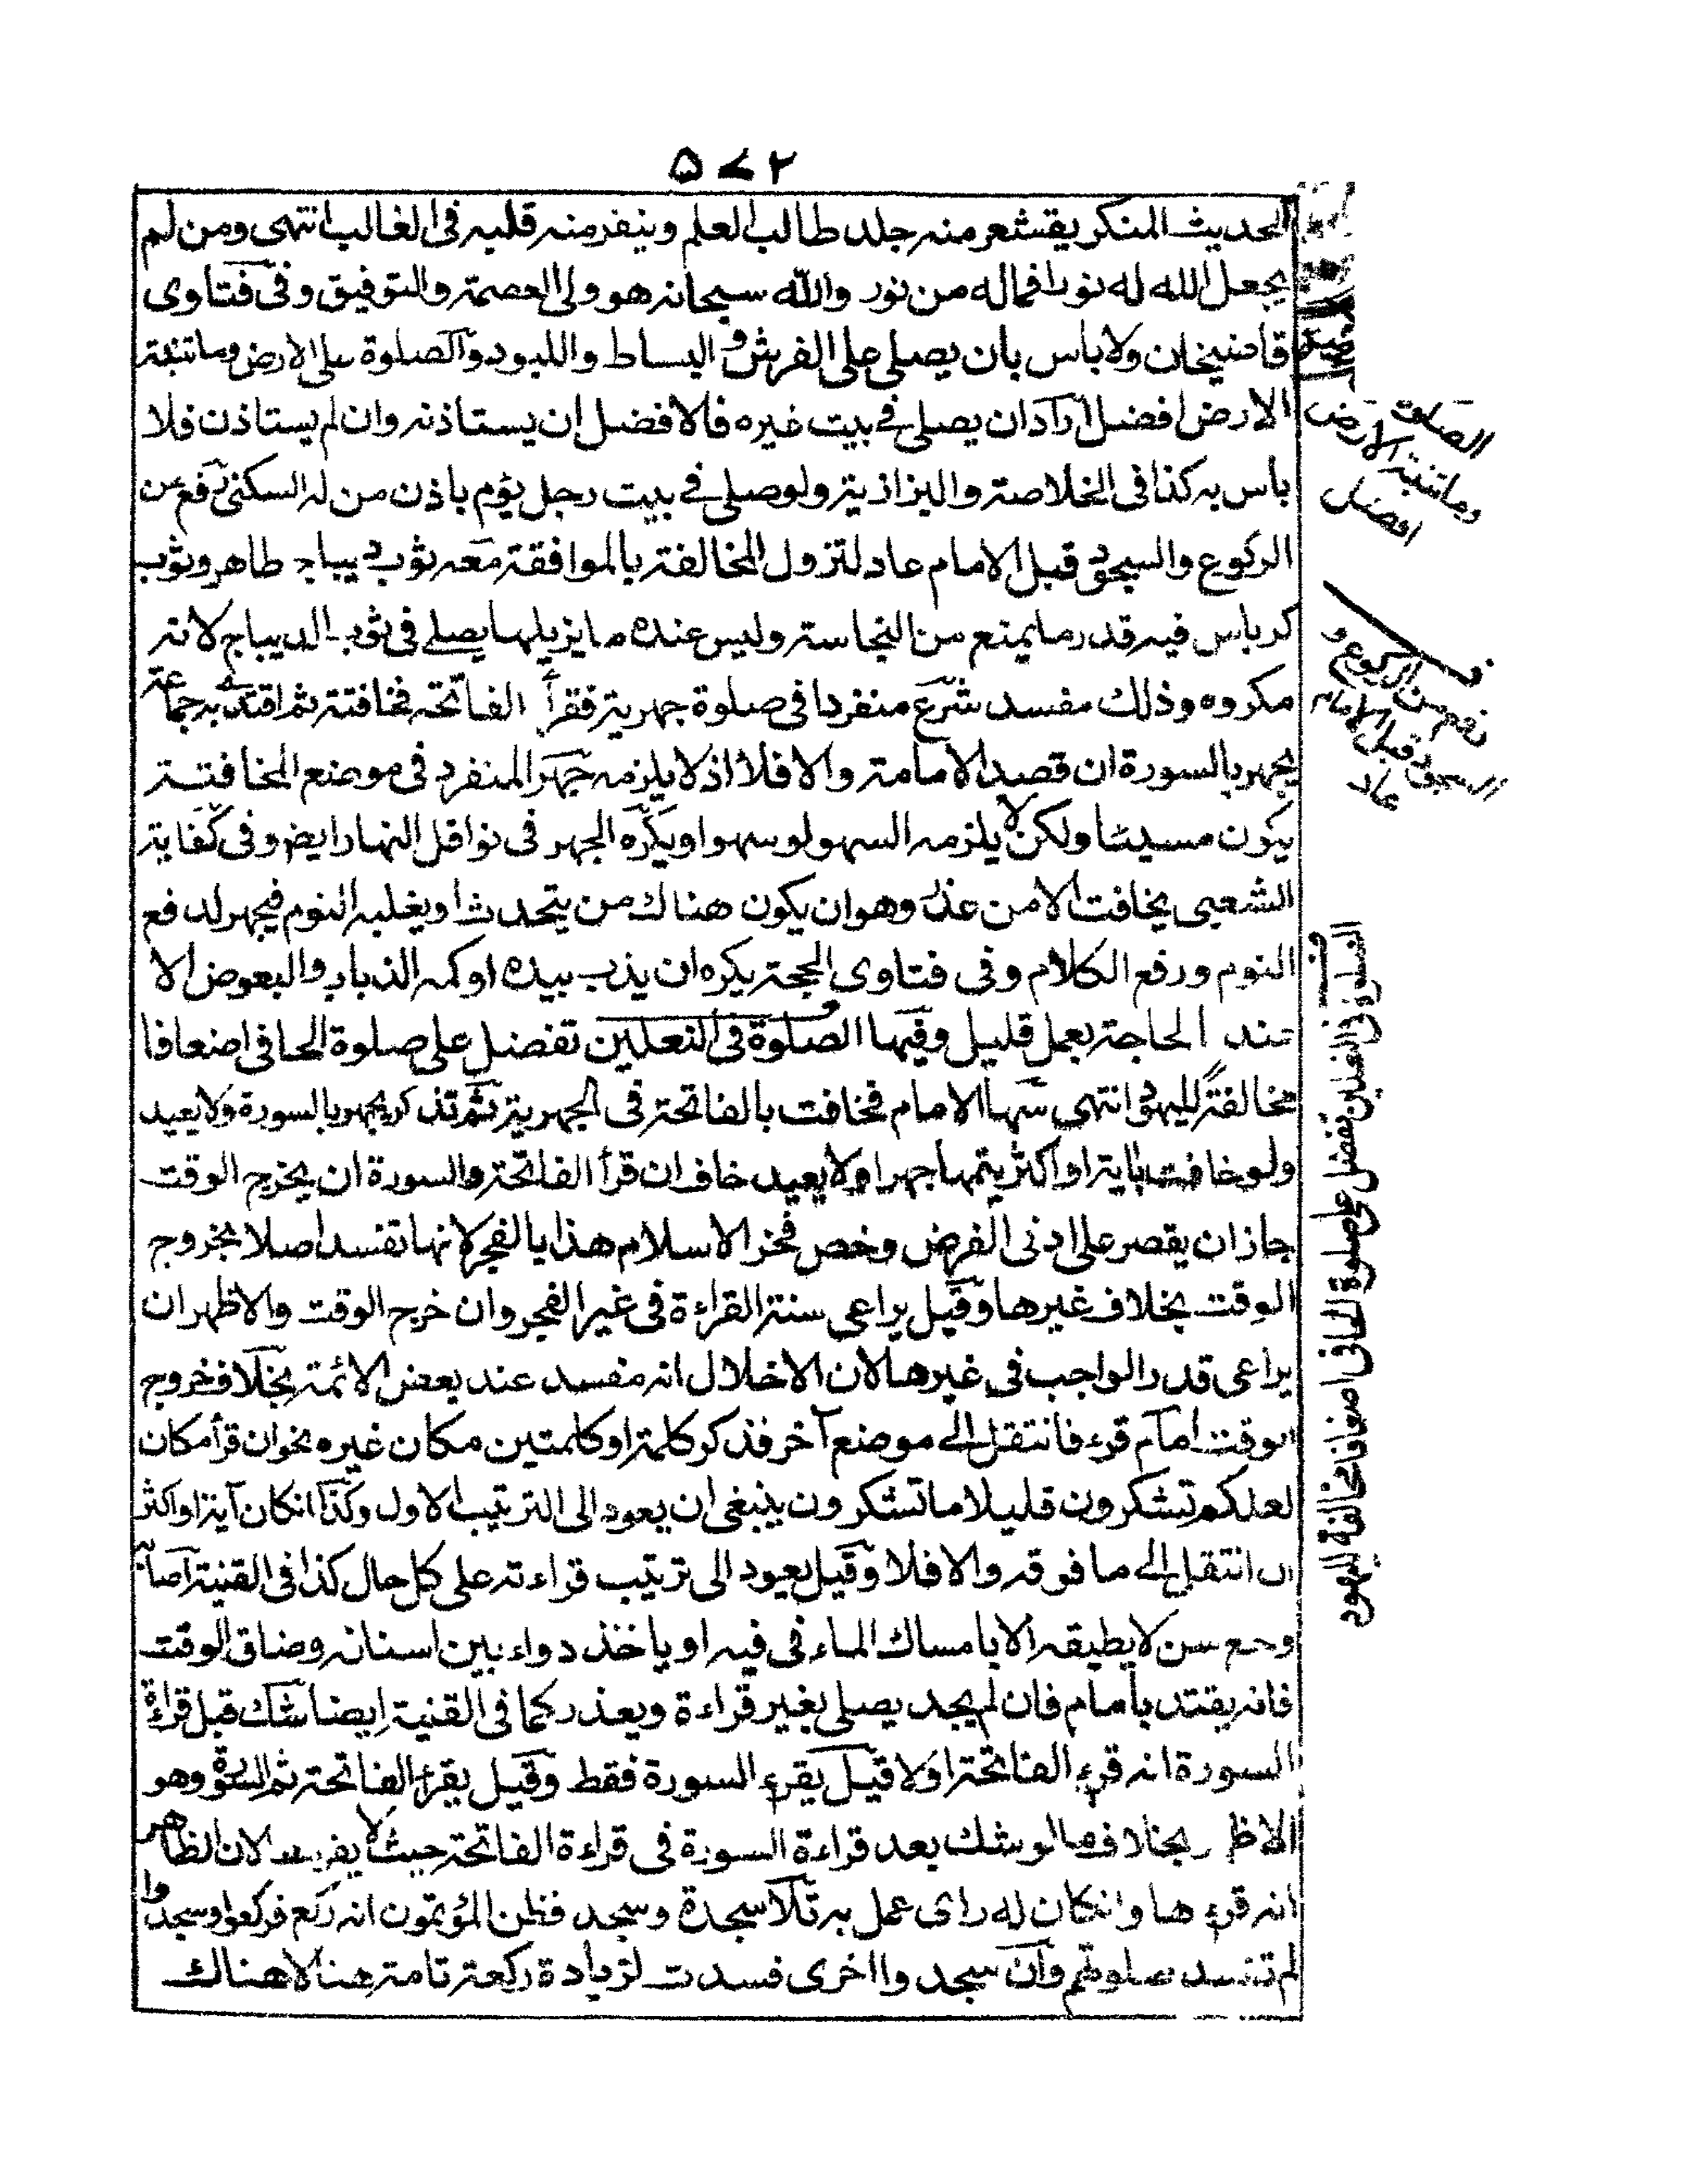 ۵۷۲
الحديث المنكر يقشعر منه جلد طالب العلم وينفر منه قلبه فى الغالب انتهى ومن لم
يجعل الله له نورا فماله من نور والله سبحانه هو ولى العصمة والتوفيق وفى فتاوى
قاضيخان ولا باس بان يصلى على الفرش و البساط واللبود والصلوة على الارض وما تنبته
الارض افضل اراد ان يصلى فى بيت غيره فالافضل ان يستاذنه وان لم يستاذن فلا
باس به كذا فى الخلاصة والبزازية ولو صلى فى بيت رجل يؤم باذن من له السكنى رفع من
الركوع والسجود قبل الامام عاد لتزول المخالفة بالموافقة معه ثوب ديباج طاهر وثوب
كرباس فيه قدر ما يمنع من النجاسة وليس عنده ما يزيلها يصلے فى ثوب الديباج لانه
مكروه وذلك مفسد شرع منفردا فى صلوة جهرية فقرأ الفاتحة مخافتة ثم اقتدى به جماعة
يجهر بالسورة ان قصد الامامة والا فلا اذ لا يلزمه جهر المنفرد فى موضع المخافتة
يكون مسيئا ولكن لا يلزمه السهو لو سهوا ويكره الجهر فى نوافل النهار ايضا وفى كفاية
الشعبى يخافت الا من عذر وهو ان يكون هناك من يتحدث او يغلبه النوم فيجهر لدفع
النوم ورفع الكلام وفى فتاوى الحجة يكره ان يذب بيده او كمه الذباب والبعوض الا
عند الحاجة بعمل قليل وفيها الصلوة فى النعلين تفضل على صلوة الحافى اضعافا
مخالفةً لليهود انتهى سها الامام فخافت بالفاتحة فى الجهرية ثم تذكر يجهر بالسورة ولا يعيد
ولو خافت باية او اكثر يتمها جهرا ولا يعيد خاف ان قرأ الفاتحة والسورة ان يخرج الوقت
جاز ان يقصر على ادنى الفرض وخص فخر الاسلام هذا بالفجر لانها تفسد اصلا بخروج
الوقت بخلاف غيرها وقيل يراعى سنة القراءة فى غير الفجر وان خرج الوقت والاظهر ان
يراعى قدر الواجب فى غيرها لان الاخلال انه مفسد عند بعض الائمة بخلاف خروج
الوقت امام قرء فانتقل الى موضع آخر فذكر كلمة او كلمتين مكان غيره نحو ان قرأ مكان
لعلكم تشكرون قليلا ما تشكرون ينبغى ان يعود الى الترتيب الاول وكذا انكان آية او اكثر
ان انتقل الى ما فوقه والا فلا وقيل يعود الى ترتيب قراءته على كل حال كذا فى القنية اصابه
وجع سن لا يطيقه الا بامساك الماء فى فيه او ياخذ دواء بين اسنانه وضاق الوقت
فانه يقتدى بامام فان لم يجد يصلى بغير قراءة ويعذر كما فى القنية ايضا شك قبل قراءة
السورة انه قرء الفاتحة اولا قيل يقرء السورة فقط وقيل يقرأ الفاتحة ثم السورة وهو
الاظهر بخلاف ما لو شك بعد قراءة السورة فى قراءة الفاتحة حيث لا لان الظاهر
انه قرء ها وانكان له راى عمل به تلا سجدة وسجد فظن المؤتمون انه ركع فركعوا وسجدوا
لم تفسد صلوتهم وان سجدوا اخرى فسدت لزيادة ركعة تامة هنا لا هناك
الصلوة على الارض
وما تنبته
افضل
رفع من الركوع و
السجود قبل الامام
عاد
الصلوة فى النعلين تفضل على صلوة الحافى اضعافا مخالفة لليهود